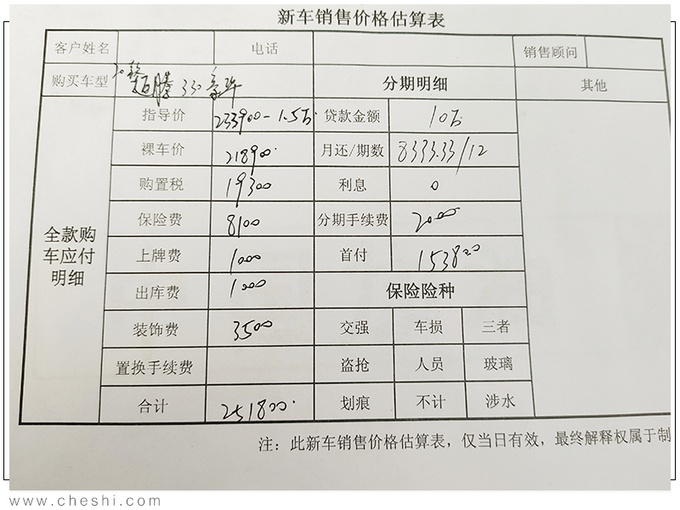 新车销售价格估算表
客户姓名 电话 销售顾问
购买车型 20款 迈腾 330豪华 分期明细 其他
全款购车应付明细
指导价 233900-1.5万 贷款金额 10万
裸车价 218900 月还/期数 8333.33/12
购置税 19300 利息 0
保险费 8100 分期手续费 2000
上牌费 1000 首付 153800
出库费 1000 保险险种
装饰费 3500 交强 车损 三者
置换手续费 盗抢 人员 玻璃
合计 251800 划痕 不计 涉水
注：此新车销售价格估算表，仅当日有效，最终解释权属于制
www.cheshi.com